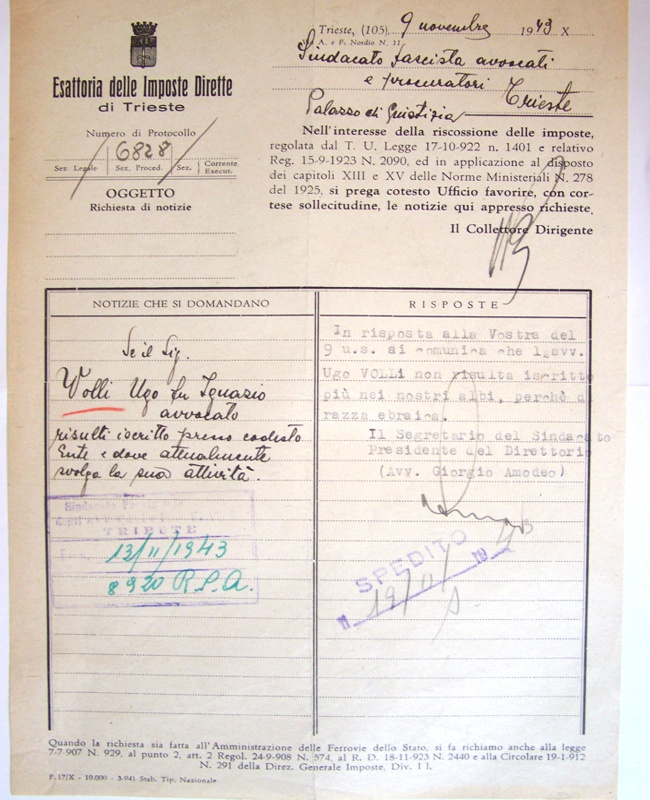 Esattoria delle Imposte Dirette
di Trieste
Numero di Protocollo
6828
Sez Legale Sez. Proced. Sez. Corrente Esecut.
OGGETTO
Richiesta di notizie
Trieste, (105) 9 novembre 1943 X
A. e F. Nordio N. 11
Sindacato fascista avvocati
e procuratori
Trieste
Palazzo di Giustizia
Nell'interesse della riscossione delle imposte,
regolata dal T. U. Legge 17-10-922 n. 1401 e relativo
Reg. 15-9-1923 N. 2090, ed in applicazione al disposto
dei capitoli XIII e XV delle Norme Ministeriali N. 278
del 1925, si prega cotesto Ufficio favorire, con cor-
tese sollecitudine, le notizie qui appresso richieste.
Il Collettore Dirigente
NOTIZIE CHE SI DOMANDANO
Se il Sig.
Volli Ugo fu Ignazio
avvocato
risulti iscritto presso codesto
Ente e dove attualmente
svolga la sua attività.
Sindacato
TRIESTE
13/11/1943
8920 R.P.A.
RISPOSTE
In risposta alla Vostra del
9 u.s. si comunica che l@avv.
Ugo VOLLi non risulta iscritto
più nei nostri albi, perchè d
razza ebraica.
Il Segretario del Sindacato
Presidente del Direttorio
(Avv. Giorgio Amodeo)
SPEDITO
19/11/
Quando la richiesta sia fatta all'Amministrazione delle Ferrovie dello Stato, si fa richiamo anche alla legge
7-7-907 N. 929, al punto 2, art. 2 Regol. 24-9-908 N. 574, al R. D. 18-11-923 N. 2440 e alla Circolare 19-1-912
N. 291 della Direz. Generale Imposte, Div. II.
P. 17/X - 10.000 - 3-941 Stab. Tip. Nazionale